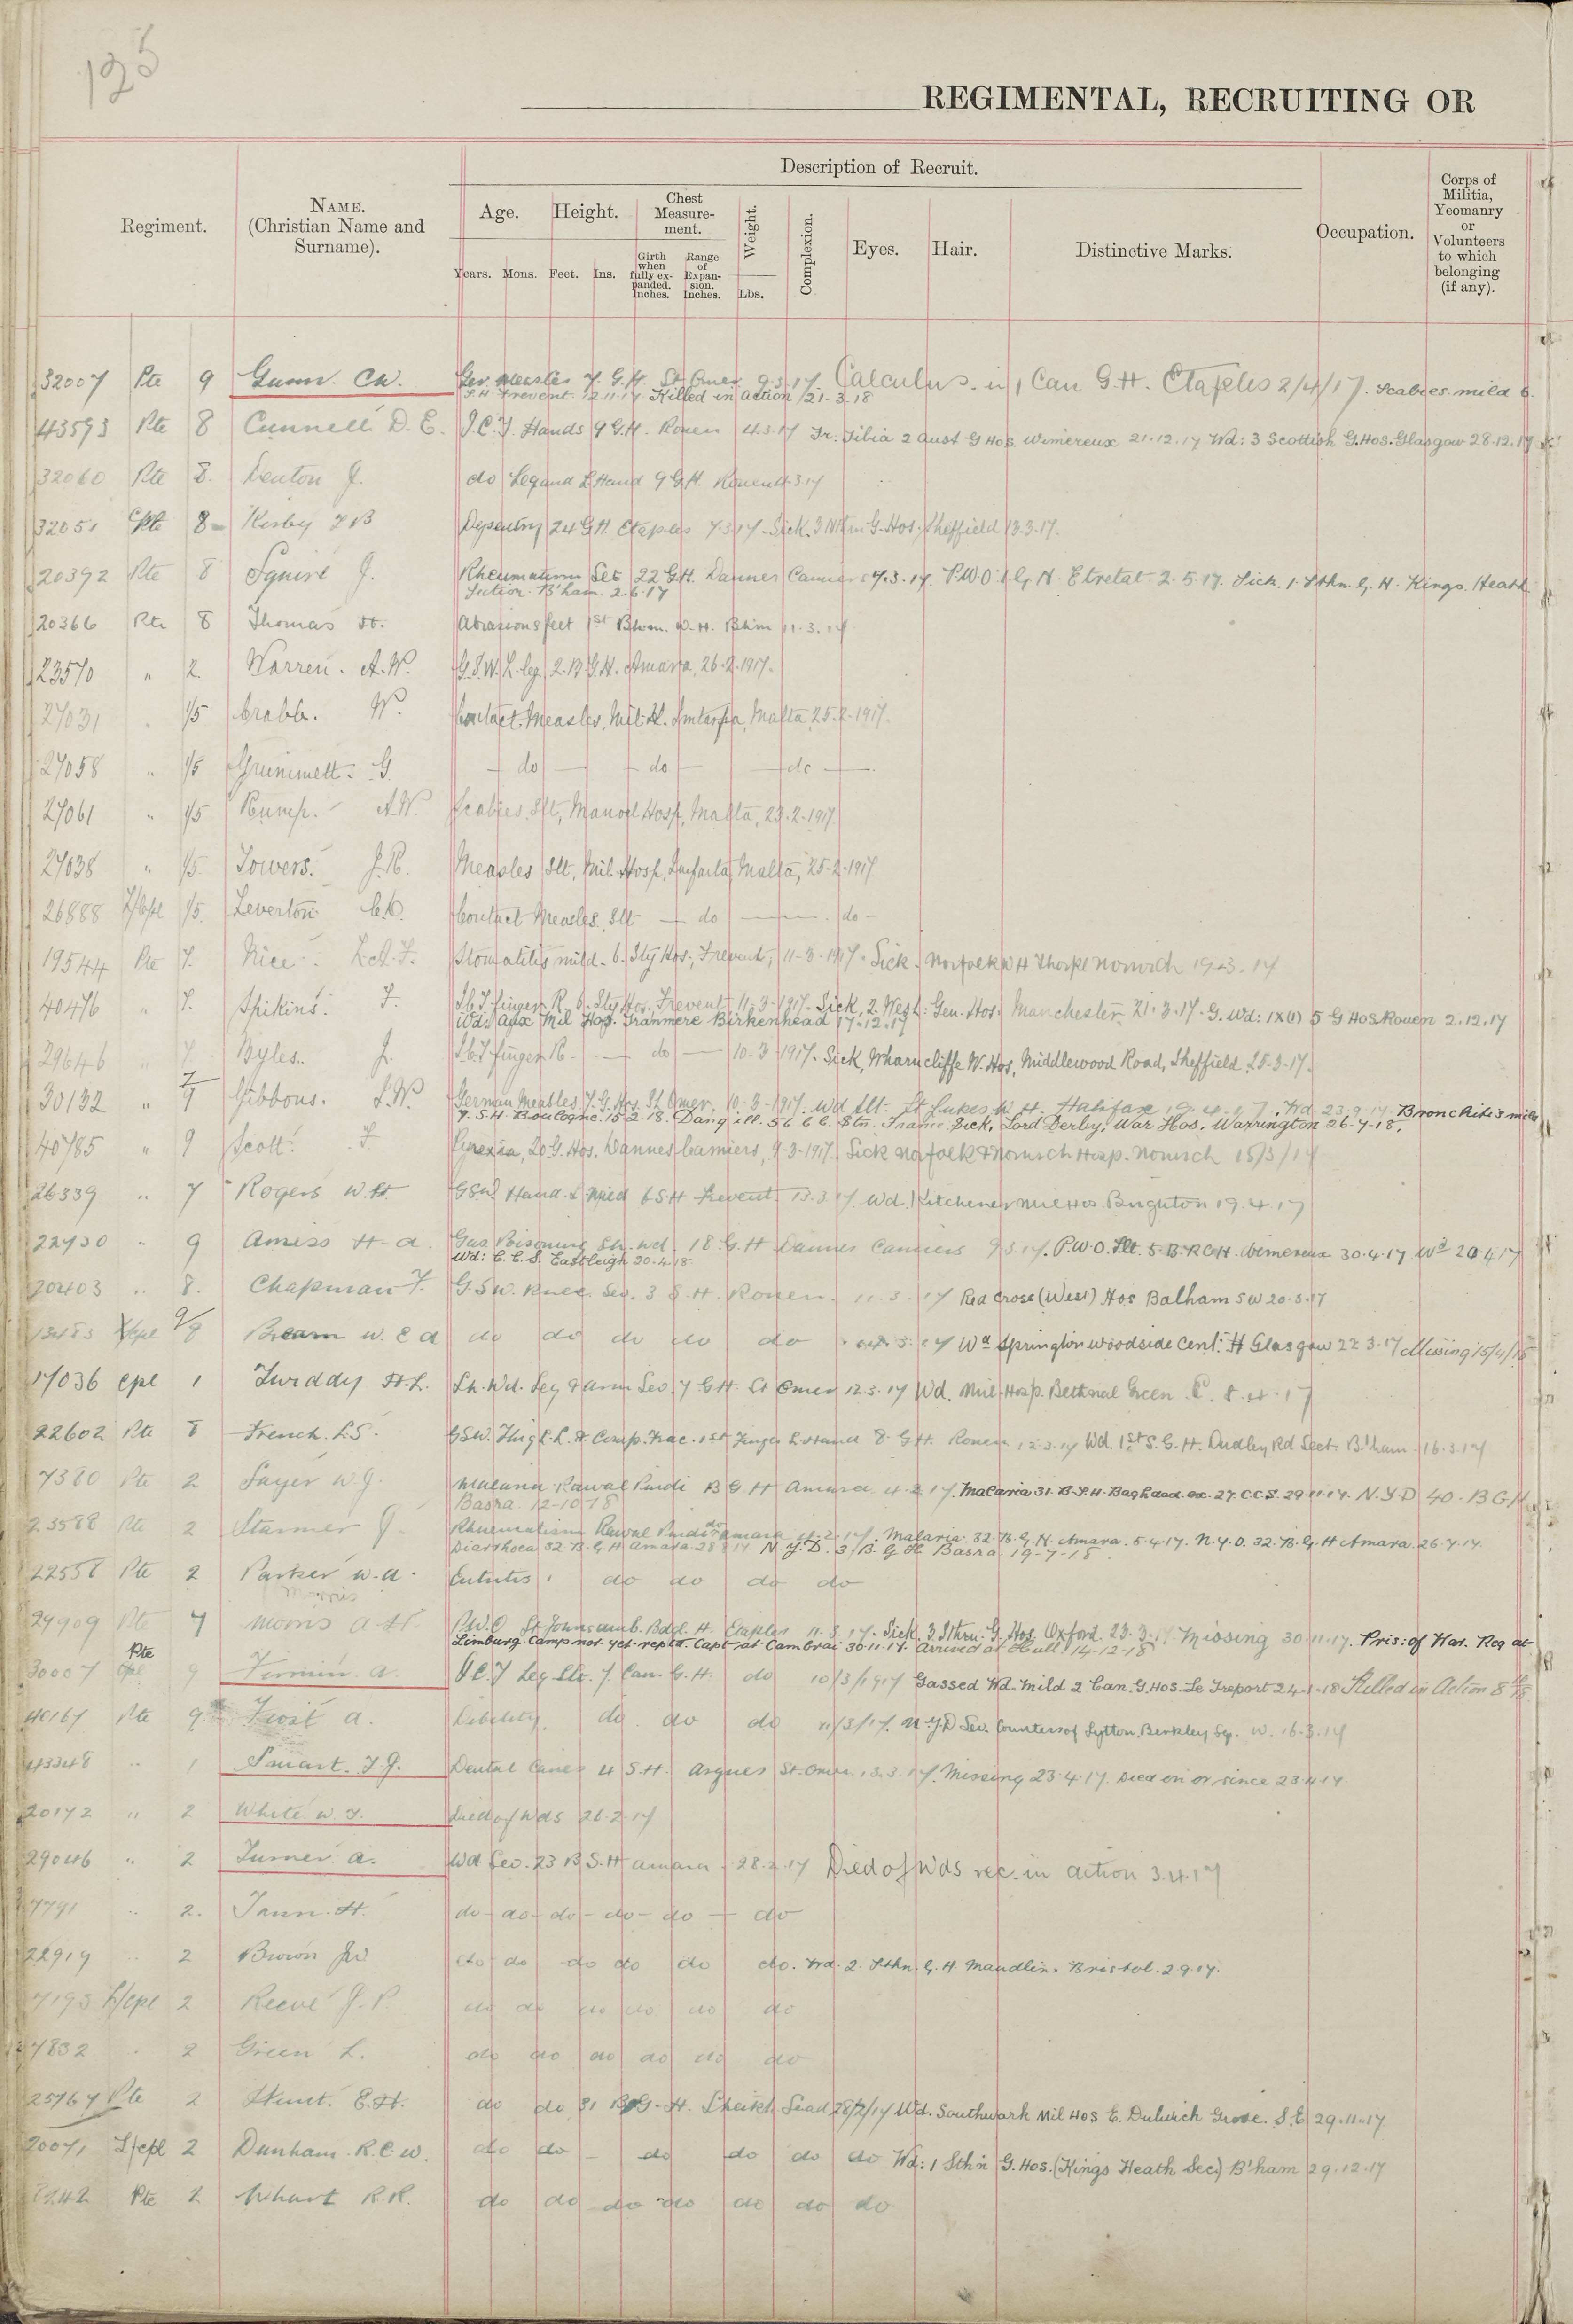 125
REGIMENTAL, RECRUITING OR
Description of Recruit.
Regiment.
NAME.
(Christian Name and
Surname).
Age.
Height.
Chest
Measure-
ment.
Weight.
Complexion.
Eyes.
Hair.
Distinctive Marks.
Occupation.
Corps of
Militia,
Yeomanry
or
Volunteers
to which
belonging
(if any).
Years. Mons. Feet. Ins.
Girth
when
fully ex-
panded.
Inches.
Range
of
Expan-
sion.
Inches.
Lbs.
32007 Pte 9 Gunn. C.W. Ger. Measles 7. G.H. St Omer 9.3.17. Calculus. 1 Can G.H. Etaples 2/4/17. Scabies mild 6.
S.H. Frevent. 12.11.17. Killed in action 21-3-18
43593 Pte 8 Cunnell D. E. I.C.T. Hands 9 G.H. Rouen 4.3.17 Fr. Tibia 2 Aust G Hos. Wimereux 21.12.17 Wd: 3 Scottish G.Hos. Glasgow 28.12.17
32060 Pte 8. Denton J. do Leg and L Hand 9 G.H. Rouen 3.17
32051 Pte 8 Kirby Dysentry 24 G.H. Etaples 7.3.17. Sick. 3 Nthn G. Hos. Sheffield 13.3.17.
20392 Pte 8 Squire J. Rheumatism Slt 22 G.H. Dannes Camiers 7.3.17. P.U.O. 1 G.H. Etretat 2.5.17. Sick. 1. Sthn. G. H. Kings Heath
Section B'ham. 2.6.17
20366 Pte 8 Thomas H. Abrasions feet 1st Bhm. W.H. Bhm 11.3.17
23570 " 2 Warren. A.W. G.S.W. L. leg. 2. B.G.H. Amara, 26-2-1917.
27031 " 1/5 Crabb. W. Contact Measles, Mil. H. Imtarfa, Malta, 25-2-1917.
27058 " 1/5 Grimmett. G. do do do
27061 " 1/5 Rump. A.W. Scabies, Slt, Manoel Hosp, Malta, 23-2-1917.
27038 " 1/5. Towers. J.R. Measles Slt, Mil. Hosp, Malta, 25-2-1917.
26888 L/Cpl 1/5. Leverton C.C. Contact Measles, Slt do do
19544 Pte 7. Nice. L.A.F. Stomatitis mild. 6. Sty Hos, Frevent, 11-3-1917. Sick. Norfolk W H Thorpe Norwich 19.3.17
40476 " 7. Spikins. F. I.C.T. finger R. 6. Sty Hos, Frevent, 11-3-1917. Sick, 2. West: Gen. Hos. Manchester 21.3.17. G. Wd: 1X(1) 5 G Hos Rouen 2.12.17
Wd: Aux Mil Hos. Tranmere Birkenhead 17.12.17
29646 " 7 Byles. J. I.C.T. finger R. do 10-3-1917. Sick, Wharncliffe W. Hos, Middlewood Road, Sheffield 25-3-17.
30132 " 7/9 Gibbons. S.W. German Measles 7. G. Hos. St Omer, 10-3-1917. Wd Slt. St Lukes W. H. Halifax Wd. 23.9.17. Bronchitis mild
7. S.H. Boulogne. 15.2.18. Dang ill. 56 C.C. Stn. France Sick, Lord Derby, War Hos. Warrington 26-4-18.
40785 " 9 Scott. F. Pyrexia, 20 G. Hos. Dannes Camiers, 9-3-1917. Sick Norfolk & Norwich Hosp. Norwich 15/3/17
26339 " 7 Rogers W.H GSW Hand. L Mild 6 S.H Frevent 13.3.17 Wd. Kitchener Mil Hos Brighton 19.4.17
22730 " 9 Amiss H. A. Gas Poisoning Sh. wd. 18. G.H Dannes Camiers 9.3.17. P.U.O. Slt. 5 B.R.C.H. Wimereux 30.4.17
Wd: C.C.S. Eastleigh 20.4.18
202403 " 8. Chapman F. G.S.W. Knee. Sev. 3 S.H. Rouen. 11.3.17 Red Cross (West) Hos Balham S W 20.3.17
L/Cpl 9/8 Bream W. E A do do do do do Wd Springburn Woodside Cent. H Glasgow 22.3.17 Missing 15/4/18
17036 Cpl 1 Twiddy H.L. Sh. Wd. Leg & Arm Sev. 7 G.H. St Omer 12.3.17 Wd. Mil. Hosp. Bethnal Green E. 8.4.17
22602 Pte 8 French. L.S. GSW. Thigh. L. & Comp. Frac. 1st Finger L Hand 8. G.H. Rouen 12.3.17 Wd. 1st S. G. H. Dudley Rd Sect. B'ham. 16.3.17
7380 Pte 2 Sayer W.J. Malaria Rawal Pindi B G H Amara 4.2.17. Malaria 31. B.S.H. Baghdad ex. 27. C.C.S. 29.11.17. N.Y.D 40. B G H
Basra. 12-10-18
23588 Pte 2 Starmer J. Rheumatism Rawal Pindi Amara 2.17. Malaria. 32. B. G. H. Amara. 5.4.17. N.Y.D. 32. B. G. H Amara. 26.7.17.
Diarrhoea 32 B. G. H Amara 28.8.17 N.Y.D. 3. B. G H Basra 19-7-18
22558 Pte 2 Parker W.A. Enteritis. do do do do
Morris
29909 Pte 7 Morris A.H. P.U.O St Johns Amb. Bdd. H. Etaples 11.3.17. Sick. 3. Sthn. G. Hos. Oxford. 23.3.17. Missing 30.11.17. Pris: of War. Reg at
Limburg Camp not yet reptd. Capt at Cambrai 30.11.17. Arrived at Hull 14-12-18
30007 Pte Cpl 9 Firmin. A. I.C.T Leg Slt. 7. Can. G. H. do 10/3/1917 Gassed Wd. Mild 2 Can. G. Hos. Le Treport 24-3-18 Killed in Action 8
40167 Pte 9. Frost A. Debility do do do 11/3/17. N.Y.D Sev. Countess of Lytton, Berkley Sq. W. 16.3.17
43348 " 1 Smart. T.J. Dental Caries 4 S.H. Arques St. Omer 13.3.17. Missing 23.4.17. Died on or since 23.4.17.
20172 " 2 White W.T. Died of Wds 26.2.17
29046 " 2 Turner. A. Wd Sev. 23 B.S.H Amara. 28.2.17 Died of Wds rec. in action 3.4.17
7791 " 2. Tann. H. do do do do do do
22919 " 2 Brown do do do do do do. Wd. 2. Sthn. G. H. Maudlin. Bristol. 2.9.17.
7193 L/Cpl 2 Reeve J.P. do do do do do do
7832 " 2 Green L. do do do do do do
25767 Pte 2 Hunt. E.H. do do 31 B.G.H. Sheikh Saad 28/2/17 Wd. Southwark Mil Hos E. Dulwich Grove. S.E 29.11.17
20071 L/Cpl 2 Dunham. R.C.W. do do do do do do Wd: 1 Sthn G. Hos. (Kings Heath Sec.) B'ham 29.12.17
Pte 2 Whart R.R. do do do do do do do